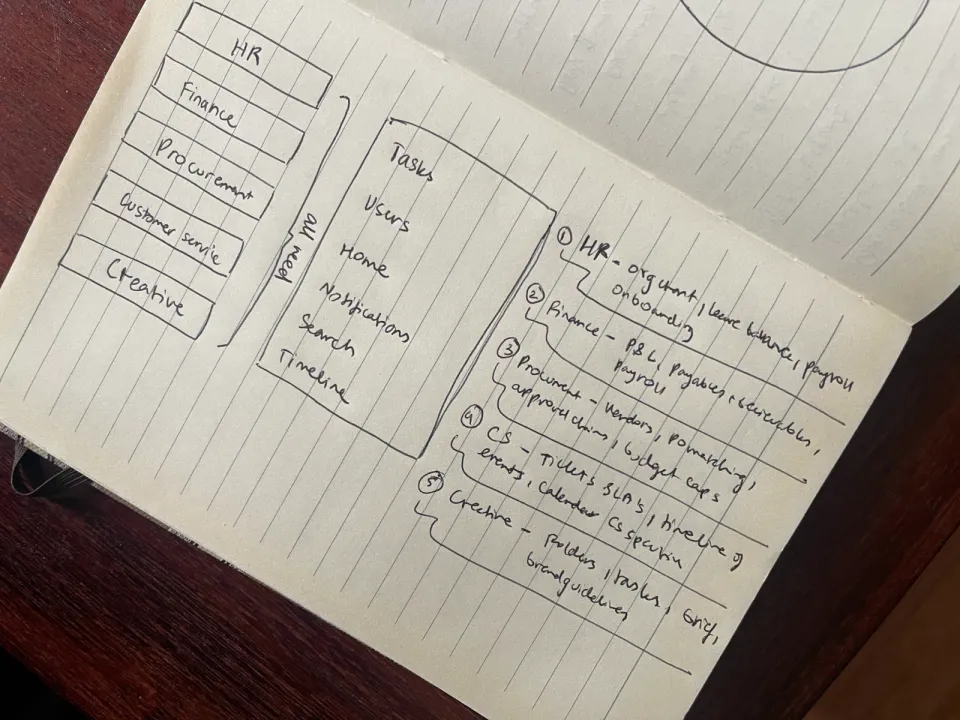 HR
Finance
Procurement
Customer service
Creative
all need
Tasks
Users
Home
Notifications
Search
Timeline
① HR - org chart, leave balance, payroll
onboarding
② Finance - P&L, payables + receivables,
payroll
③ Procurment - Vendors, PO matching,
approval chains, budget caps
④ CS - Tickets SLA's, timeline of
events, calendar CS specific
⑤ Creative - Folders, tasks, brief,
brand guidelines